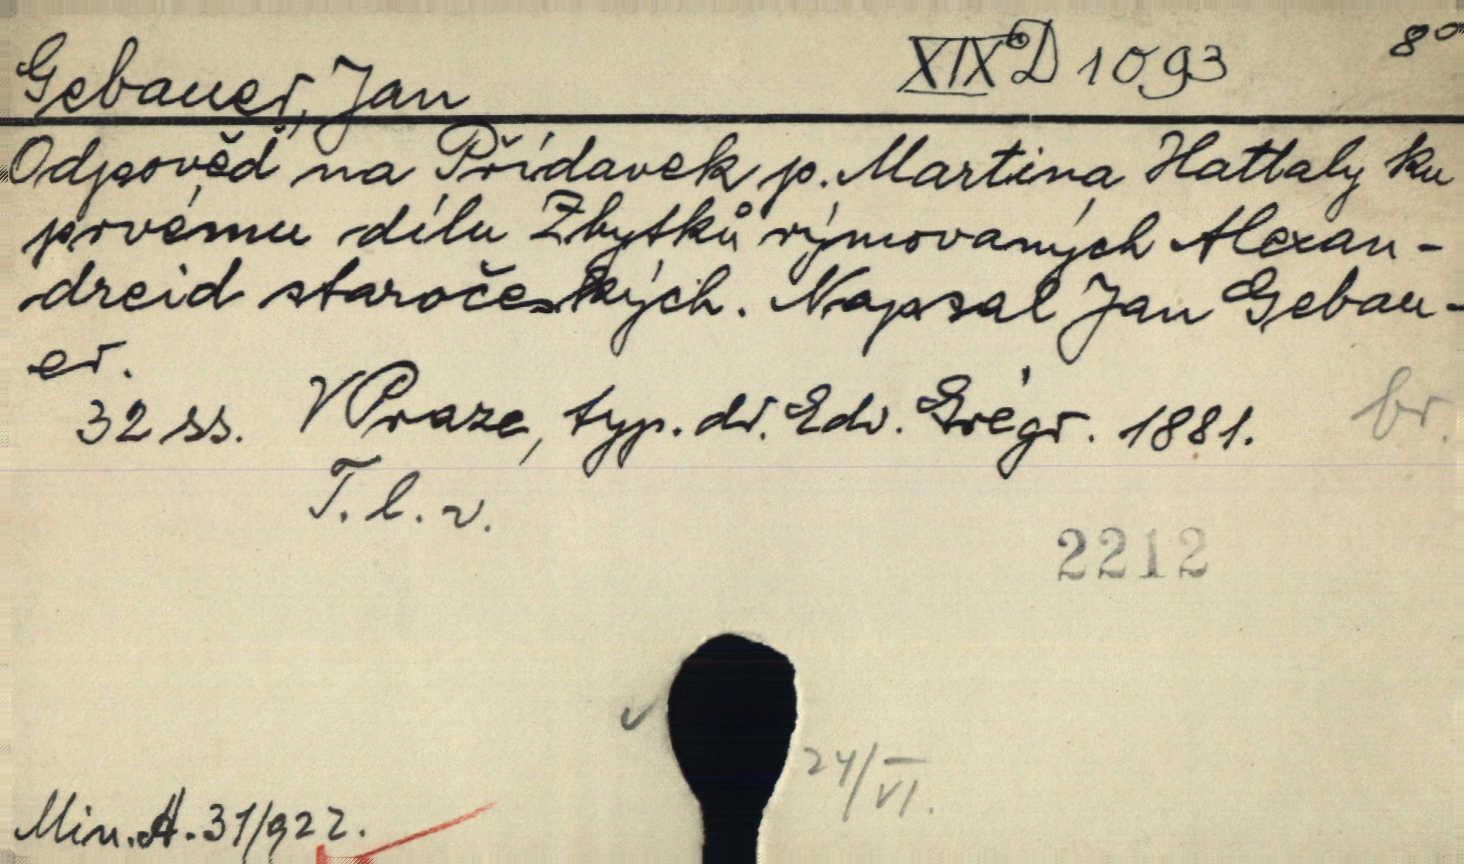 Gebauer, Jan XIX D 1093 8°
Odpověď na Přídavek p. Martina Hattaly ku
prvému dílu Zbytků rýmovaných Alexan-
dreid staročeských. Napsal Jan Gebau-
er.
32 ss. V Praze, typ. dr. Edv. Grégr. 1881. br.
T. l. v.
2212
24/VI.
Min. A. 31/922.